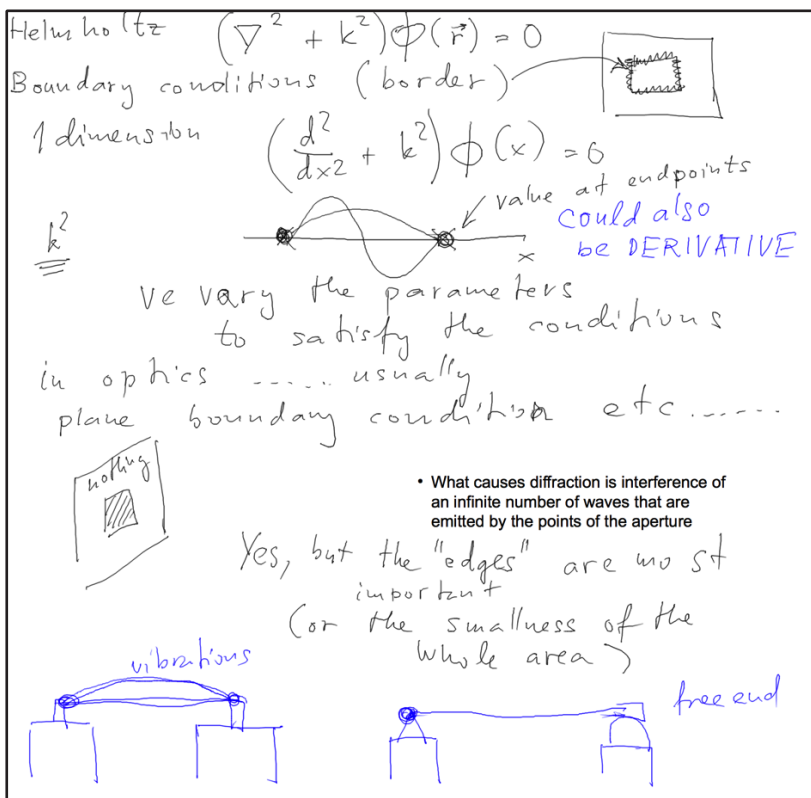 Helmholtz (∇² + k²)ϕ(r⃗) = 0
Boundary conditions (border)
1 dimension (d²/dx2 + k²)ϕ(x) = 0
value at endpoints
could also
be DERIVATIVE
k²
x
ve vary the parameters
to satisfy the conditions
in optics ...... usually
plane boundary condition etc......
nothing
• What causes diffraction is interference of
an infinite number of waves that are
emitted by the points of the aperture
Yes, but the "edges" are most
important
(or the smallness of the
whole area)
vibrations
free end